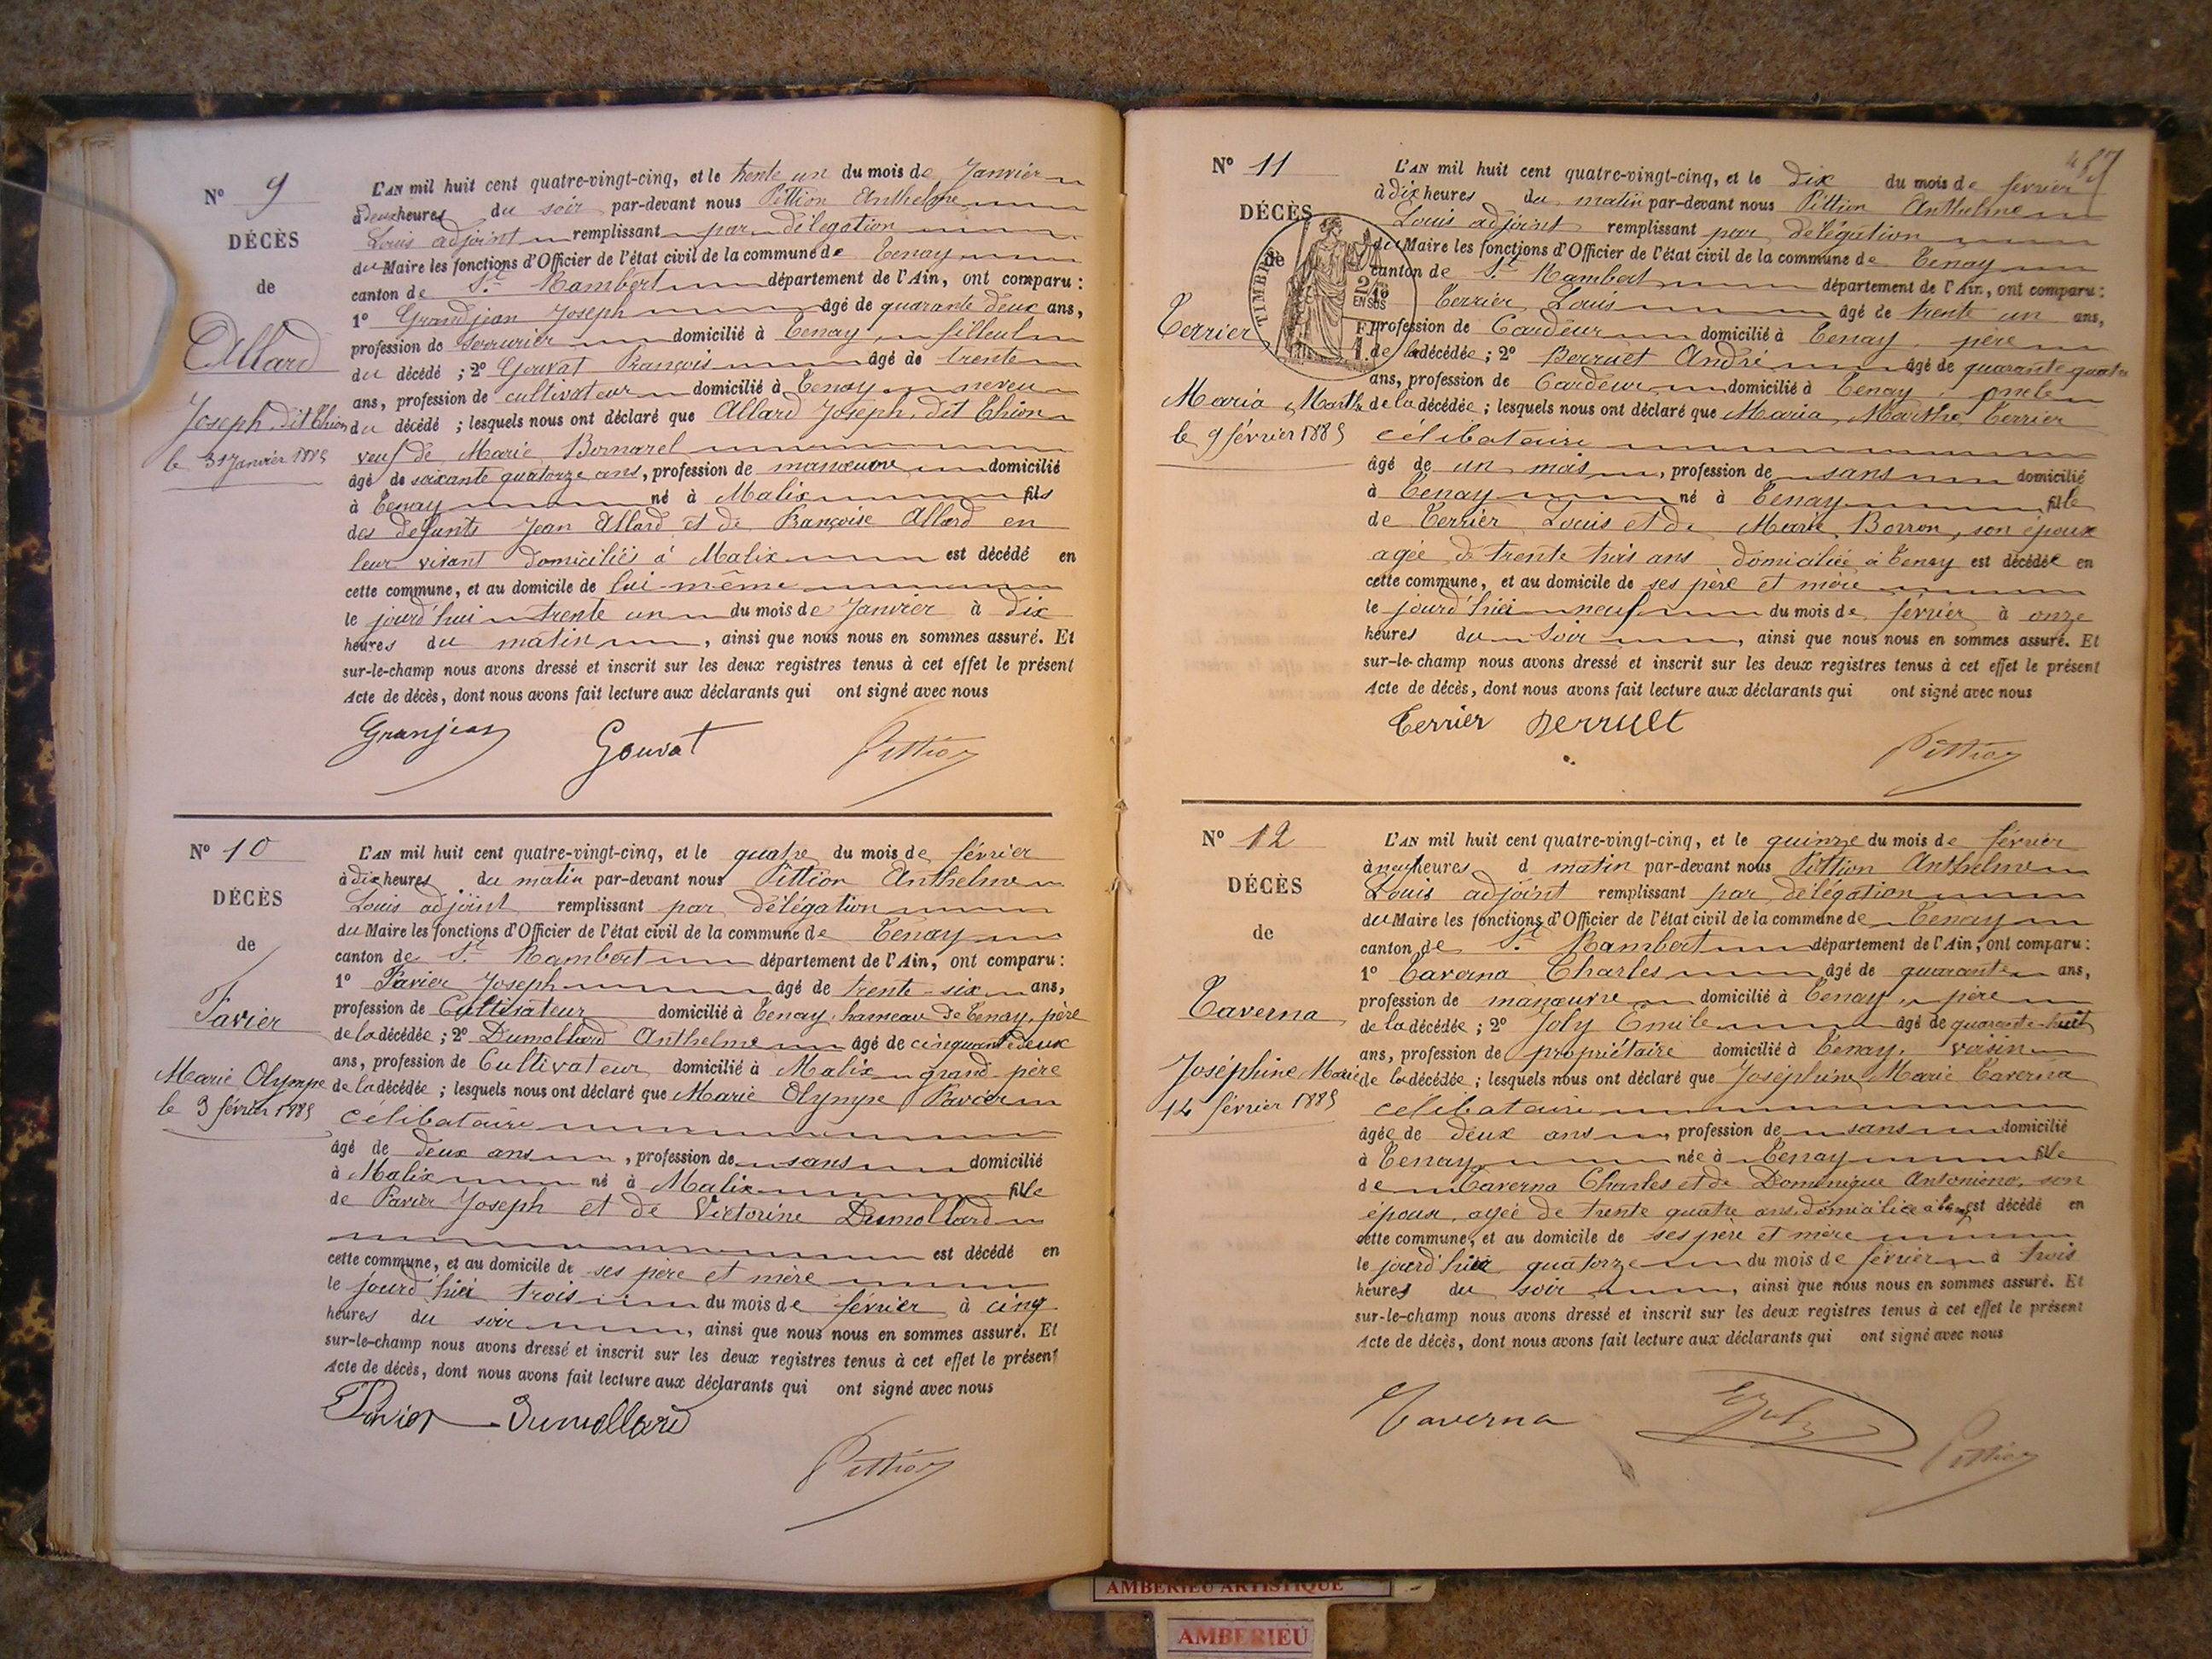 N° 9
DÉCÈS
de
Allard
Joseph dit Thion
le 31 Janvier 1885
L'AN mil huit cent quatre-vingt-cinq, et le trente un du mois de Janvier
à deux heures du soir par-devant nous Pittion Anthelme
Louis adjoint remplissant par délégation
du Maire les fonctions d'Officier de l'état civil de la commune de Tenay
canton de St Rambert département de l'Ain, ont comparu :
1° Grandjean Joseph âgé de quarante deux ans,
profession de serrurier domicilié à Tenay, filleul
du décédé ; 2° Gouvat François âgé de trente
ans, profession de cultivateur domicilié à Tenay neveu
du décédé ; lesquels nous ont déclaré que Allard Joseph dit Thion
veuf de Marie Bornarel
âgé de soixante quatorze ans, profession de manœuvre domicilié
à Tenay né à Malix fils
des défunts Jean Allard et de Françoise Allard en
leur vivant domiciliés à Malix est décédé en
cette commune, et au domicile de lui-même
le jourd'hui trente un du mois de Janvier à dix
heures du matin, ainsi que nous nous en sommes assuré. Et
sur-le-champ nous avons dressé et inscrit sur les deux registres tenus à cet effet le présent
Acte de décès, dont nous avons fait lecture aux déclarants qui ont signé avec nous
Granjean Gouvat Pittion
N° 10
DÉCÈS
de
Favier
Marie Olympe
le 3 février 1885
L'AN mil huit cent quatre-vingt-cinq, et le quatre du mois de février
à dix heures du matin par-devant nous Pittion Anthelme
Louis adjoint remplissant par délégation
du Maire les fonctions d'Officier de l'état civil de la commune de Tenay
canton de St Rambert département de l'Ain, ont comparu :
1° Favier Joseph âgé de trente-six ans,
profession de Cultivateur domicilié à Tenay, hameau de Tenay, père
de la décédée ; 2° Dumollard Anthelme âgé de cinquante deux
ans, profession de Cultivateur domicilié à Malix grand-père
de la décédée ; lesquels nous ont déclaré que Marie Olympe Favier
célibataire
âgé de deux ans, profession de sans domicilié
à Malix né à Malix fille
de Favier Joseph et de Victorine Dumollard
est décédé en
cette commune, et au domicile de ses père et mère
le jourd'hier trois du mois de février à cinq
heures du soir, ainsi que nous nous en sommes assuré. Et
sur-le-champ nous avons dressé et inscrit sur les deux registres tenus à cet effet le présent
Acte de décès, dont nous avons fait lecture aux déclarants qui ont signé avec nous
Favier Dumollard
Pittion
N° 11
DÉCÈS
de
Terrier
Maria Marthe
le 9 février 1885
TIMBRE
EN SUS
L'AN mil huit cent quatre-vingt-cinq, et le dix du mois de février
à dix heures du matin par-devant nous Pittion Anthelme
Louis adjoint remplissant par délégation
du Maire les fonctions d'Officier de l'état civil de la commune de Tenay
canton de St Rambert département de l'Ain, ont comparu :
Terrier Louis âgé de trente un ans,
profession de Cardeur domicilié à Tenay, père
de la décédée ; 2° Berruet André âgé de quarante quatre
ans, profession de Cardeur domicilié à Tenay, oncle
de la décédée ; lesquels nous ont déclaré que Maria Marthe Terrier
célibataire
âgé de un mois, profession de sans domicilié
à Tenay né à Tenay fille
de Terrier Louis et de Marie Borron, son épouse
agée de trente trois ans domiciliée à Tenay est décédée en
cette commune, et au domicile de ses père et mère
le jourd'hier neuf du mois de février à onze
heures du soir, ainsi que nous nous en sommes assuré. Et
sur-le-champ nous avons dressé et inscrit sur les deux registres tenus à cet effet le présent
Acte de décès, dont nous avons fait lecture aux déclarants qui ont signé avec nous
Terrier Berruet
Pittion
N° 12
DÉCÈS
de
Taverna
Joséphine Marie
14 février 1885
L'AN mil huit cent quatre-vingt-cinq, et le quinze du mois de février
à neuf heures d matin par-devant nous Pittion Anthelme
Louis adjoint remplissant par délégation
du Maire les fonctions d'Officier de l'état civil de la commune de Tenay
canton de St Rambert département de l'Ain, ont comparu :
1° Taverna Charles âgé de quarante ans,
profession de manœuvre domicilié à Tenay, père
de la décédée ; 2° Joly Emile âgé de quarante-huit
ans, profession de propriétaire domicilié à Tenay, voisin
de la décédée ; lesquels nous ont déclaré que Joséphine Marie Taverna
célibataire
âgée de deux ans, profession de sans domicilié
à Tenay née à Tenay fille
de Taverna Charles et de Dominique Antonione, son
épouse, agée de trente quatre ans, domiciliée à Tenay est décédé en
cette commune, et au domicile de ses père et mère
le jourd'hier quatorze du mois de février à trois
heures du soir, ainsi que nous nous en sommes assuré. Et
sur-le-champ nous avons dressé et inscrit sur les deux registres tenus à cet effet le présent
Acte de décès, dont nous avons fait lecture aux déclarants qui ont signé avec nous
Taverna EJoly Pittion
AMBERIEU ARTISTIQUE
AMBERIEU